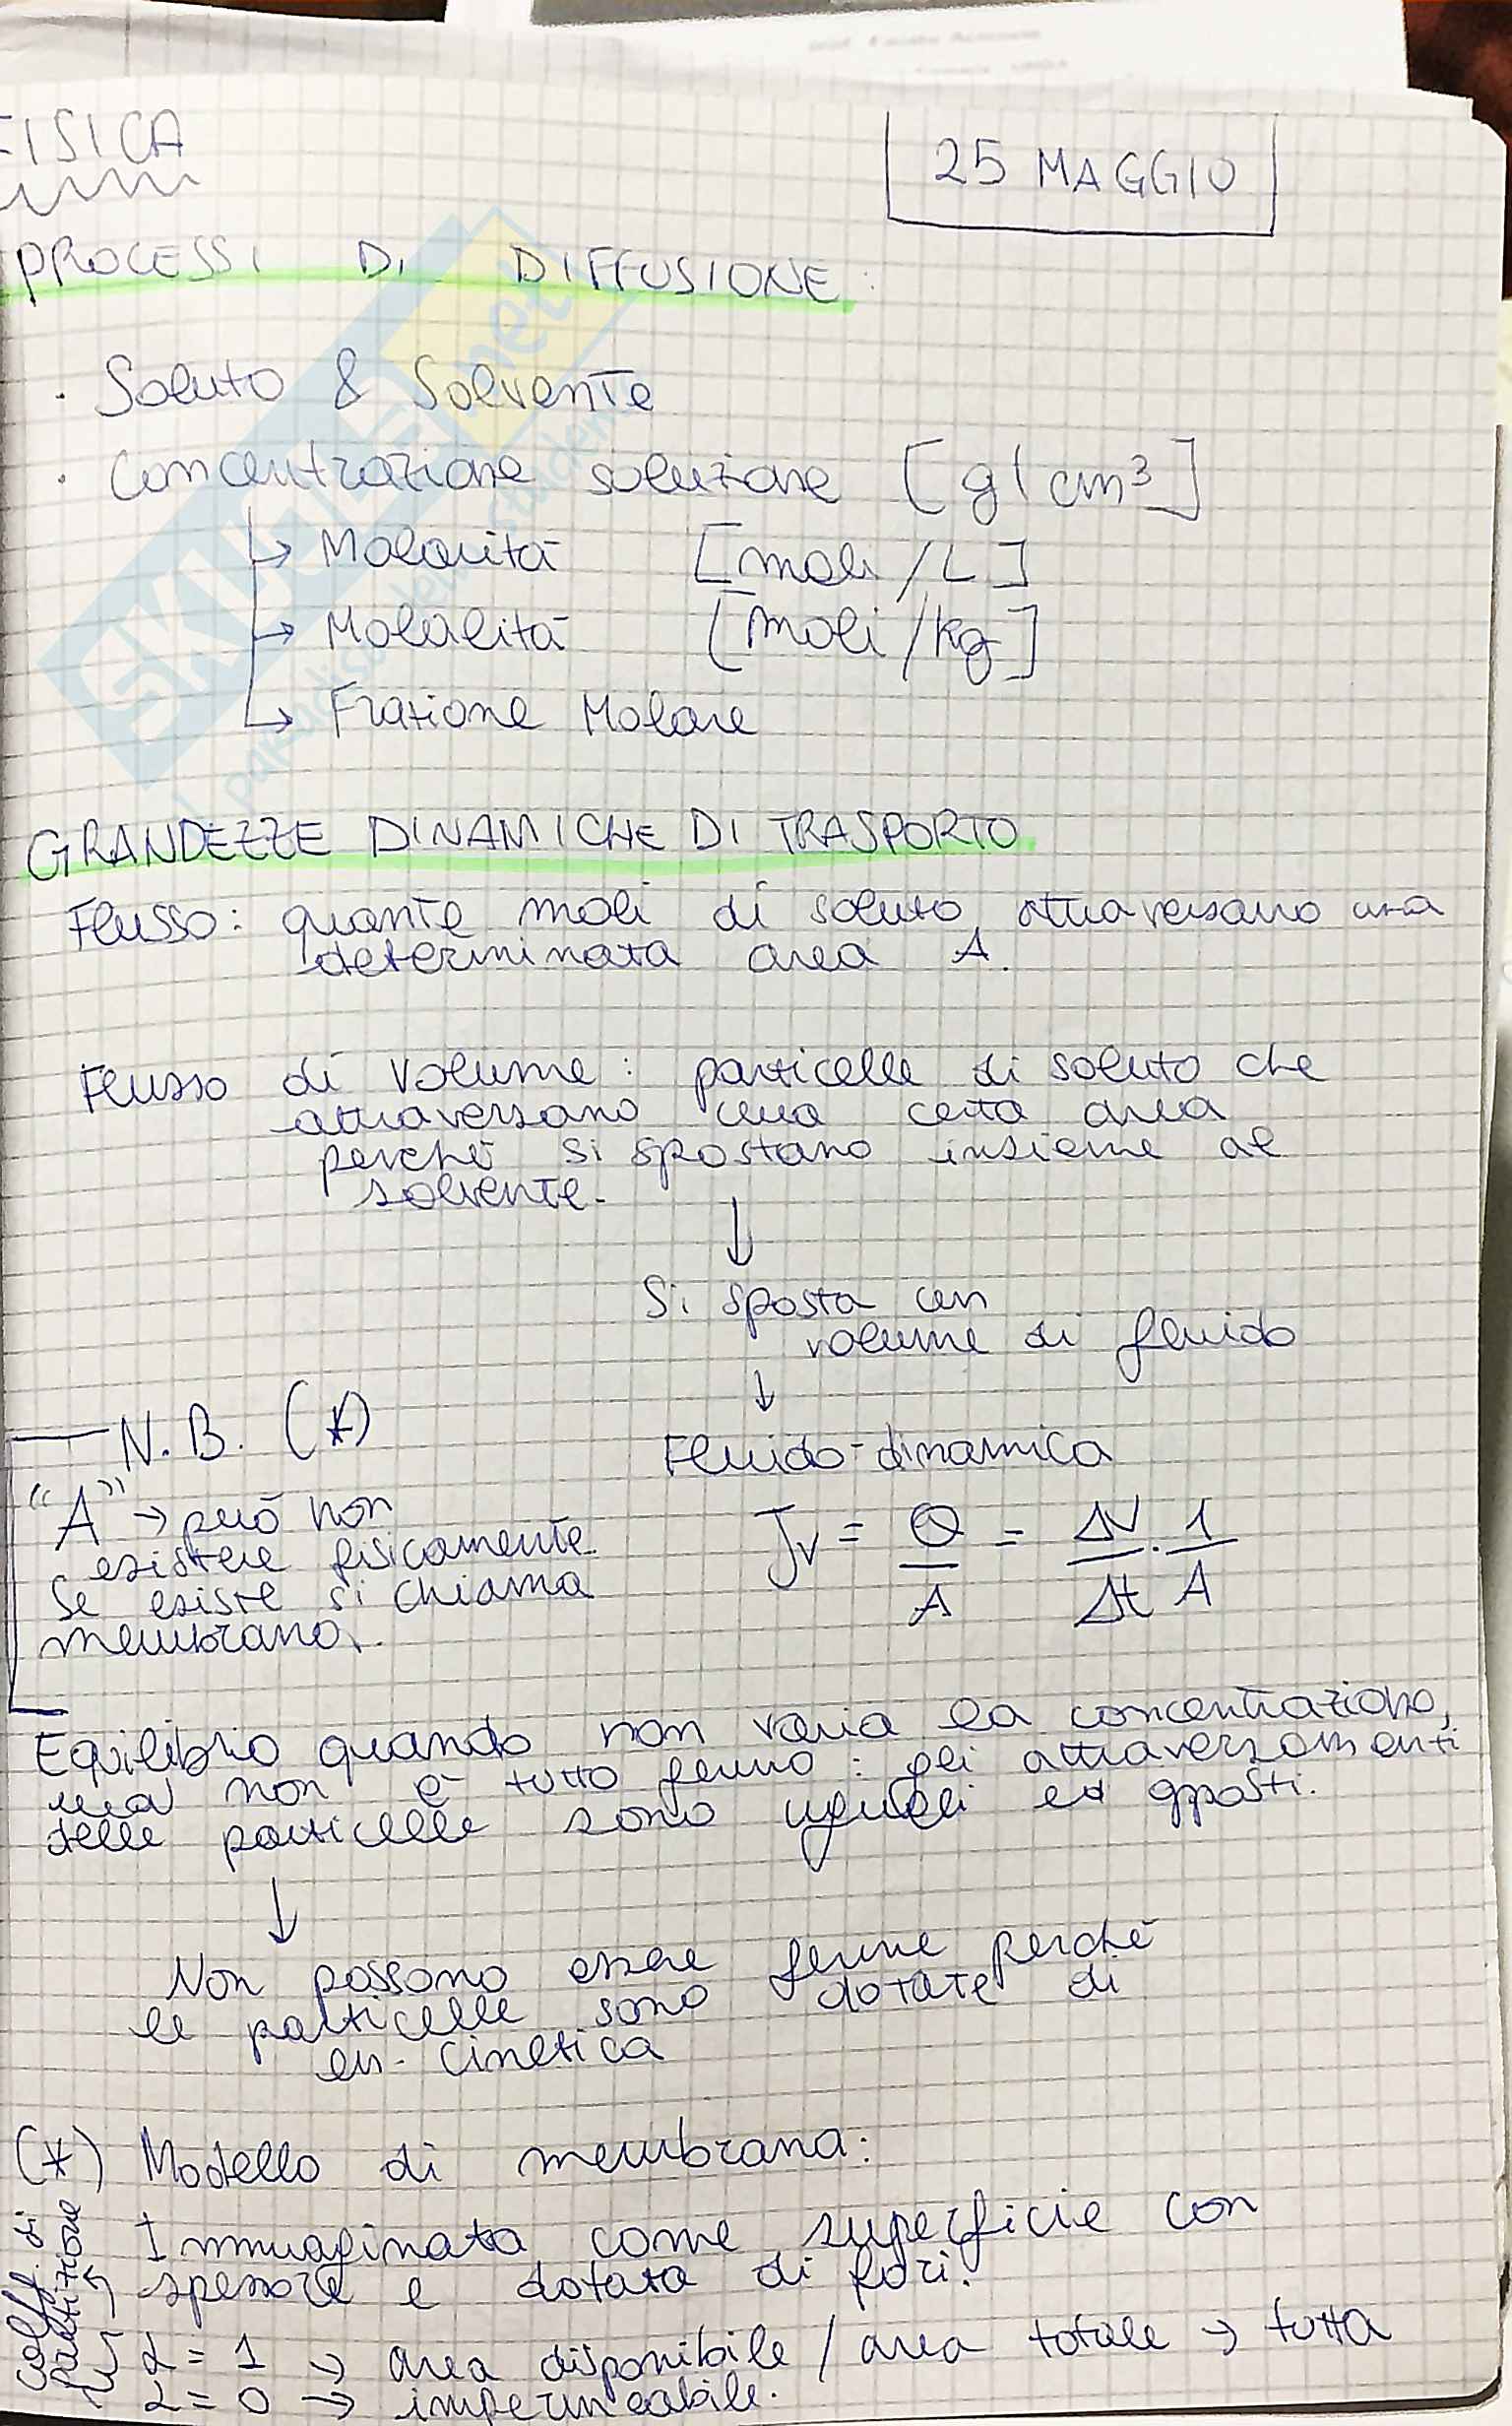 FISICA
25 MAGGIO
PROCESSI DI DIFFUSIONE:
· Soluto & Solvente
· Concentrazione soluzione [g/cm³]
↳ Molarità [moli/L]
↳ Molalità [moli/kg]
↳ Frazione Molare
GRANDEZZE DINAMICHE DI TRASPORTO
Flusso: quante moli di soluto attraversano una
determinata area A.
Flusso di volume: particelle di soluto che
attraversano una certa area
perché si spostano insieme al
solvente.
↓
Si sposta un
volume di fluido
↓
Fluido-dinamica
Jv = Q/A = ΔV/Δt · 1/A
N.B. (*)
"A" → può non
esistere fisicamente.
Se esiste si chiama
membrana.
Equilibrio quando non varia la concentrazione,
ma non è tutto fermo: gli attraversamenti
delle particelle sono uguali ed opposti.
↓
Non possono essere ferme perché
le particelle sono dotate di
en. cinetica
(*) Modello di membrana:
Immaginata come superficie con
spessore e dotata di fori.
coeff. di
partizione
α = 1 → area disponibile / area totale → tutta
α = 0 → impermeabile.
SKUOLA.net
il paradiso dello studente